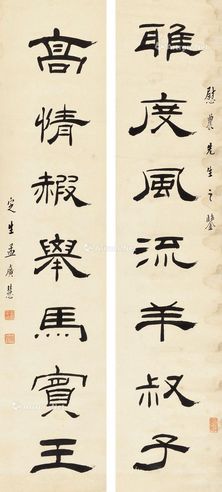 慰農先生之鑒
雅度風流羊叔子
高情遐舉馬賓王
定生孟廣慧